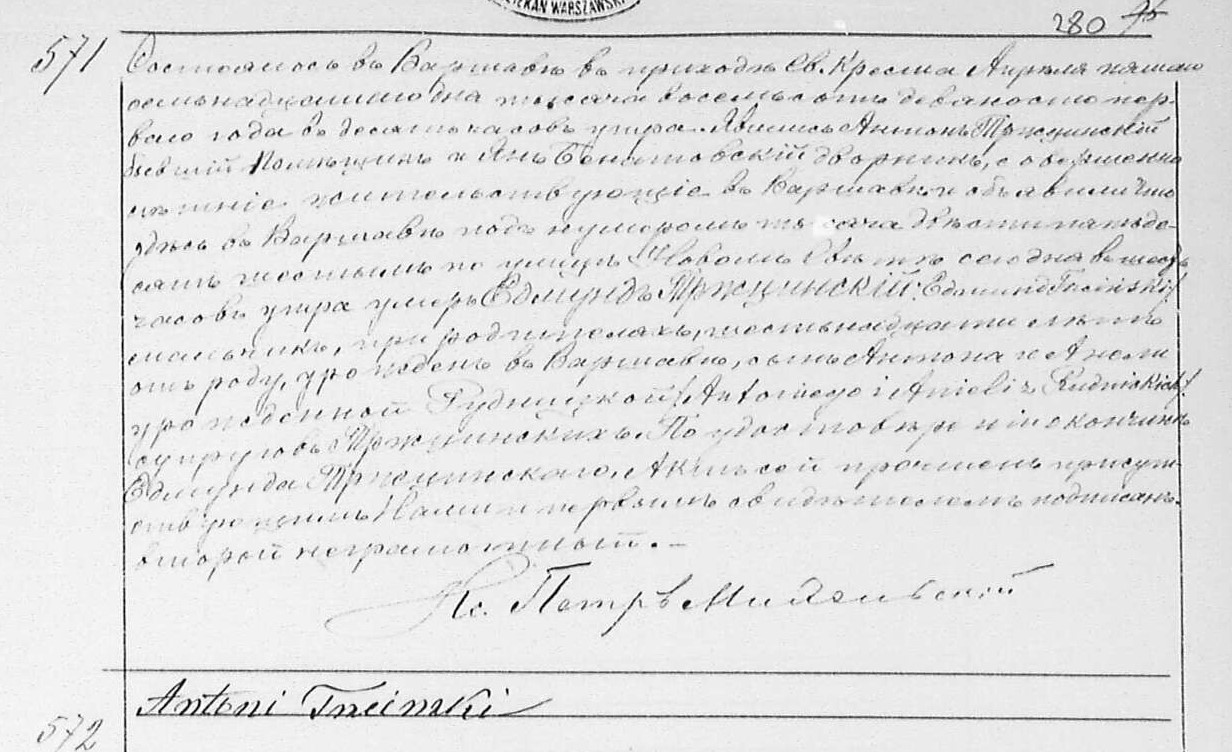 ДZIEKAN WARSZAWSKI
280 75
571 Состоялось въ Варшавѣ въ приходѣ Св. Креста Апрѣля
семьнадцатаго дня тысяча восемьсотъ девяносто пер-
ваго года въ десять часовъ утра. Явились Антонъ Тржцинскій
бывшій Помѣщикъ и Янъ дворникъ, совершенно
лѣтніе жительствующіе въ Варшавѣ и объявили что
здѣсь въ Варшавѣ подъ нумеромъ тысяча двѣсти пятьде-
сятъ шестымъ по улицѣ Новомъ Свѣтѣ сего дня въ шесть
часовъ утра умеръ Эдмундъ Тржцинскій /Edmund Trcinski/
мальчикъ, при родителяхъ, шестьнадцати лѣтъ
отъ роду, урожденъ въ Варшавѣ, сынъ Антона и Анели
урожденной Рудницкой /Antoniego i Anieli z Rudnickich/
супруговъ Тржцинскихъ. По удостовѣреніи о кончинѣ
Эдмунда Тржцинскаго, Актъ сей прочтенъ присут-
ствующимъ Нами и первымъ свидѣтелемъ подписанъ.
второй неграмотный. —
Кс. Петръ
Antoni Trcinski
572